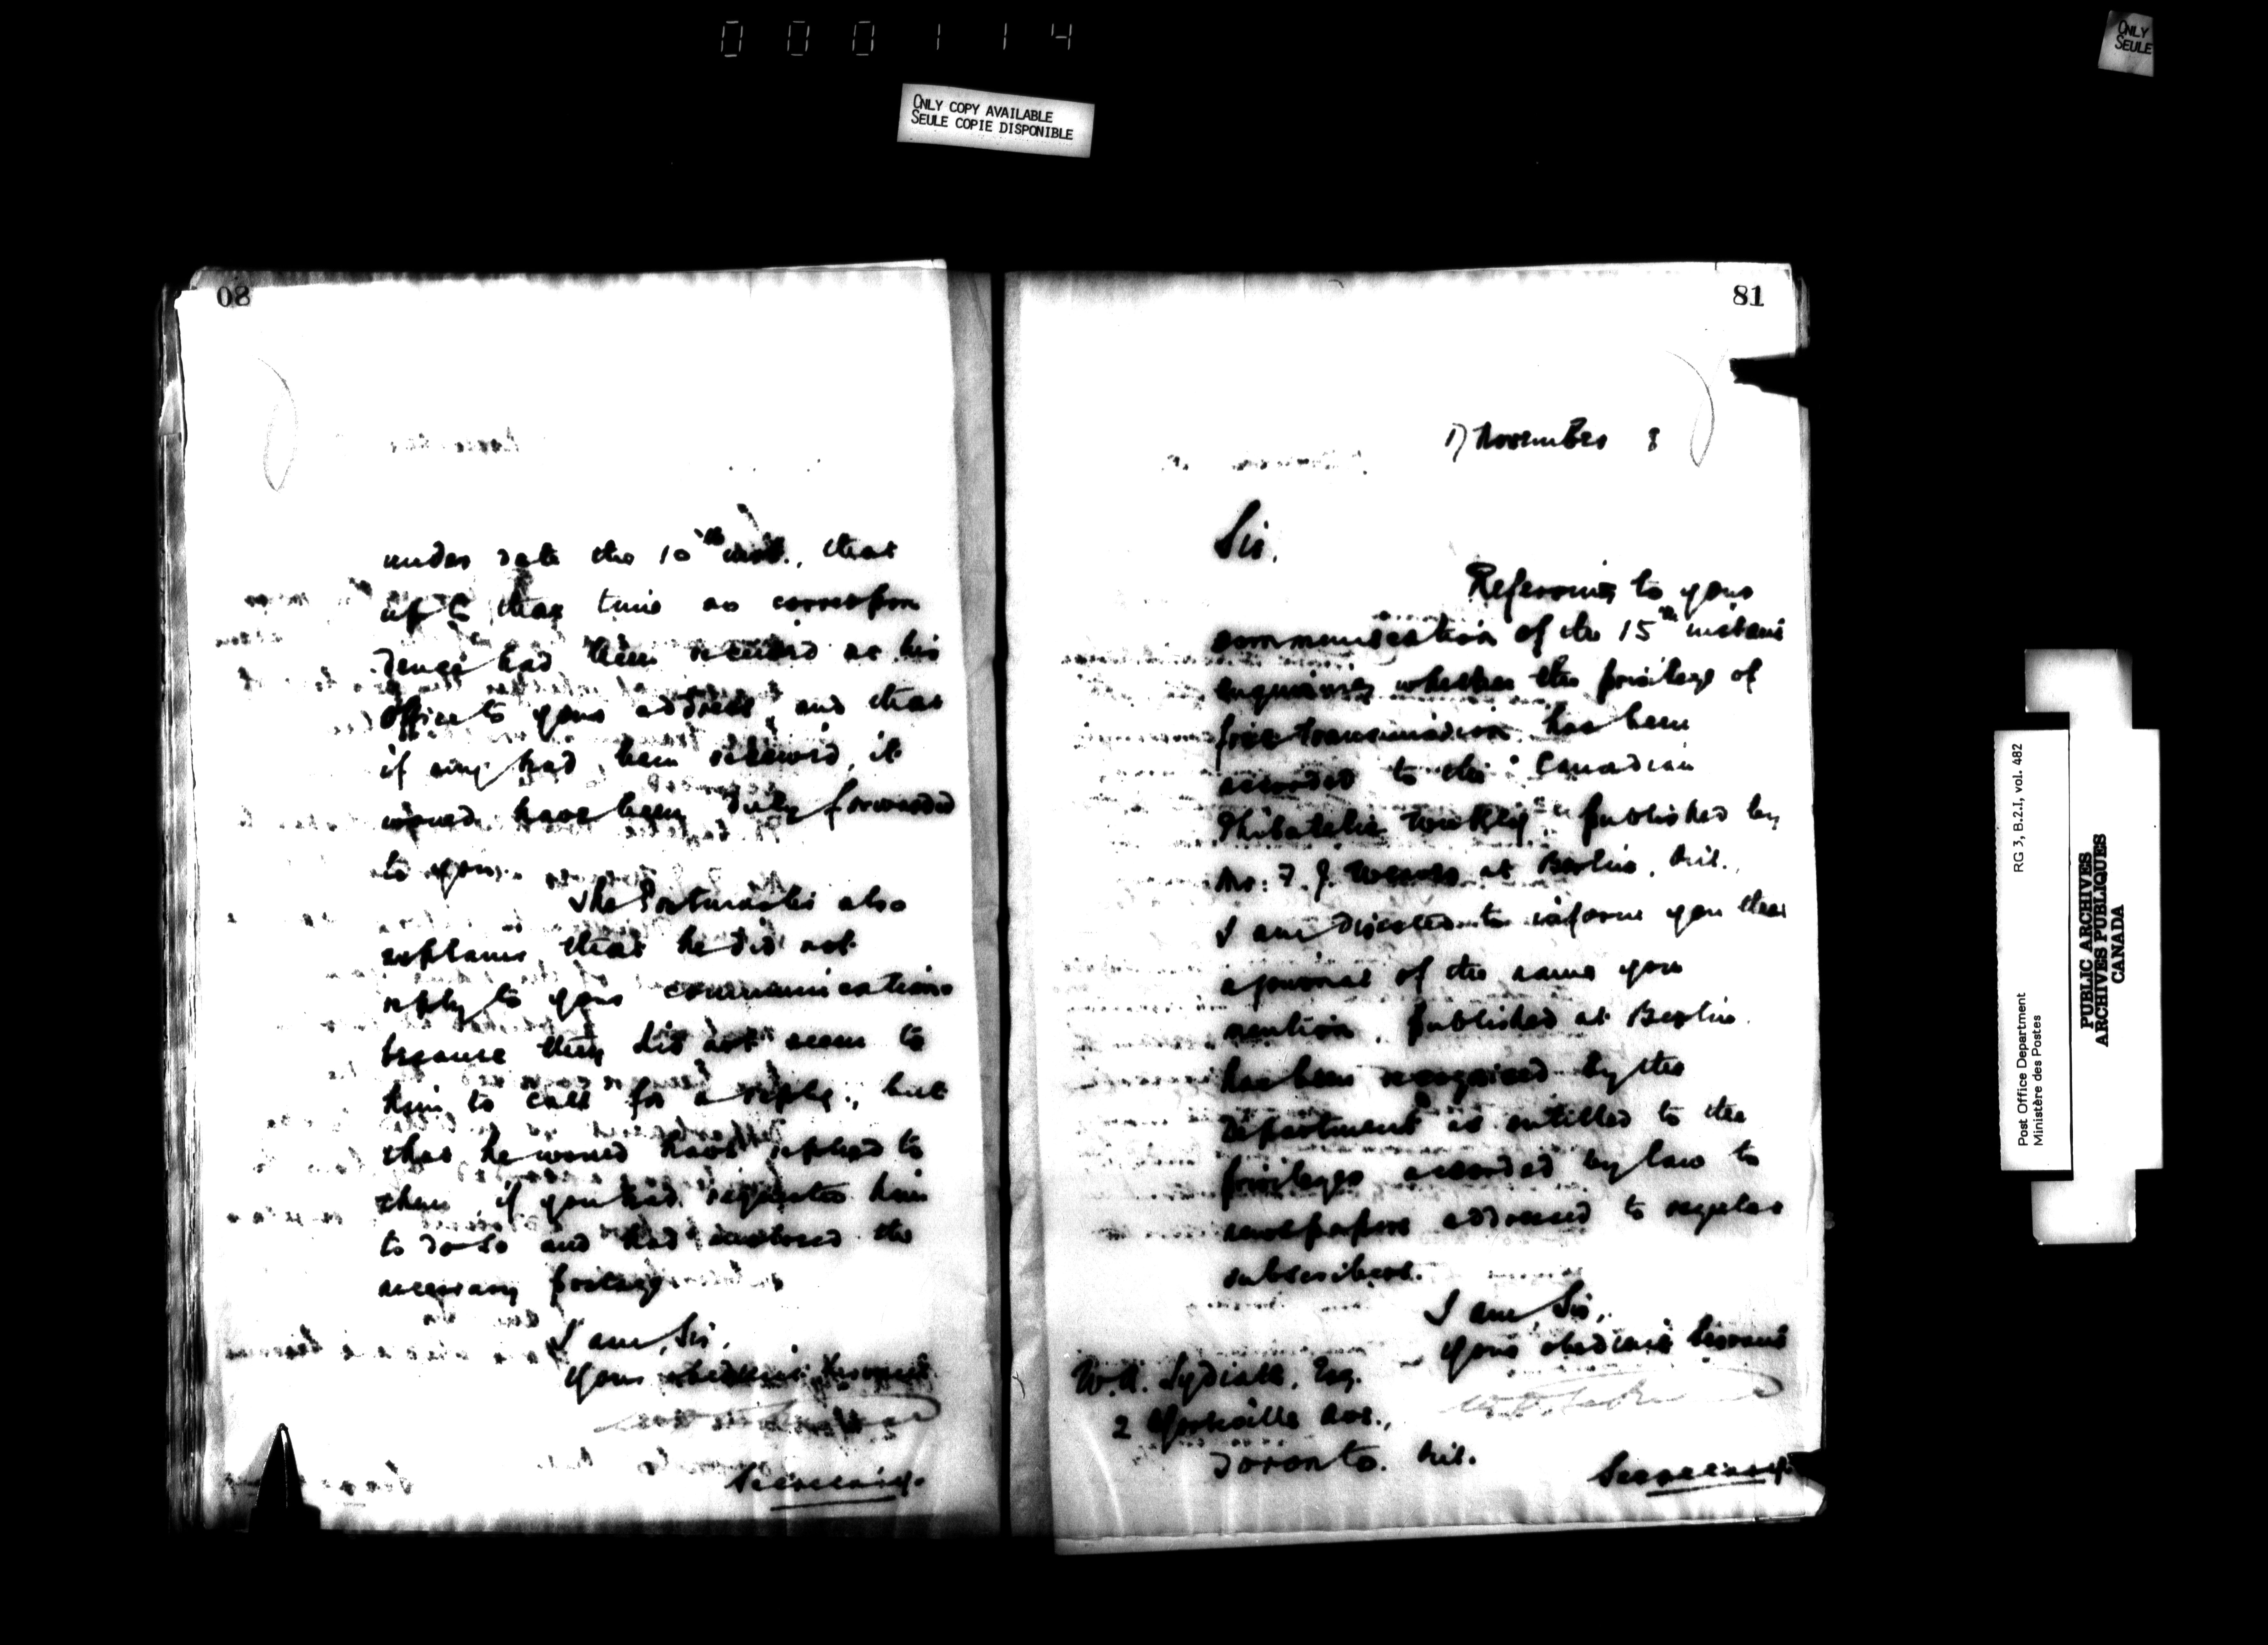 000114
ONLY COPY AVAILABLE
SEULE COPIE DISPONIBLE
ONLY
SEULE
08
under date the 10th inst., that
up to that time no correspon
dence had been received at his
office to your address, and that
if any had been received, it
would have been duly forwarded
to you.
The Postmaster also
explains that he did not
reply to your communications
because they did not seem to
him to call for a reply, but
that he would have replied to
them if you had requested him
to do so and had enclosed the
necessary postage.
I am, Sir,
Your obedient Servant
Secretary.
81
17 November 8
Sir,
Referring to your
communication of the 15th instant
enquiring whether the privilege of
free transmission has been
accorded to the "Canadian
Philatelic Weekly" published by
Mr. F. J. at Berlin, Ont.,
I am directed to inform you that
a journal of the name you
mention, published at Berlin
has been recognized by the
Department as entitled to the
privileges accorded by law to
newspapers addressed to regular
subscribers.
I am, Sir,
Your obedient Servant
W. A. Lydiatt, Esq.
2 Yorkville Ave.,
Toronto. Ont.
Secretary.
Post Office Department RG 3, B.2.I, vol. 482
Ministère des Postes
PUBLIC ARCHIVES
ARCHIVES PUBLIQUES
CANADA